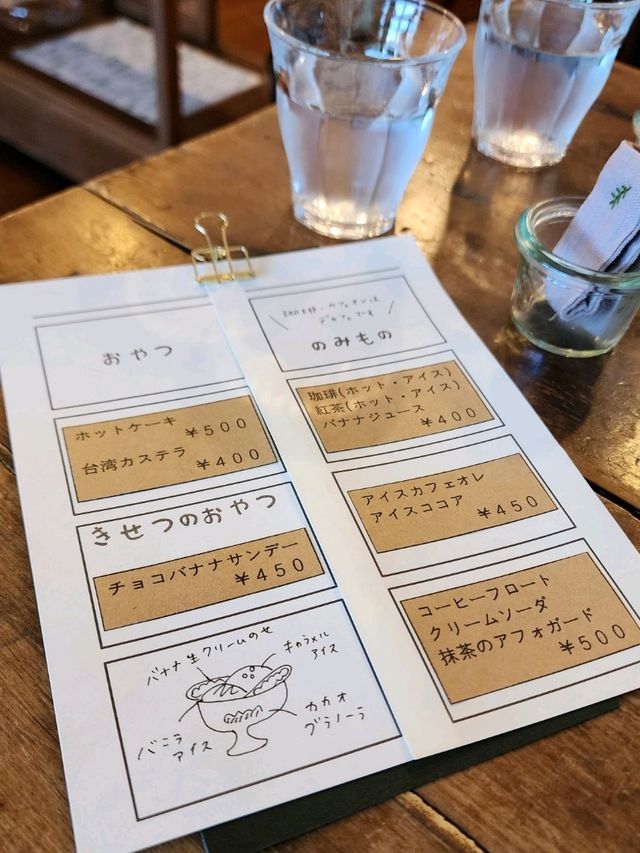 おやつ
ホットケーキ
￥500
台湾カステラ
￥400
きせつのおやつ
チョコバナナサンデー
￥450
バナナ生クリームのせ
キャラメル
アイス
バニラ
アイス
カカオ
グラノーラ
珈琲・カフェオレは
デカフェです
のみもの
珈琲(ホット・アイス)
紅茶(ホット・アイス)
バナナジュース
￥400
アイスカフェオレ
アイスココア
￥450
コーヒーフロート
クリームソーダ
抹茶のアフォガード
￥500